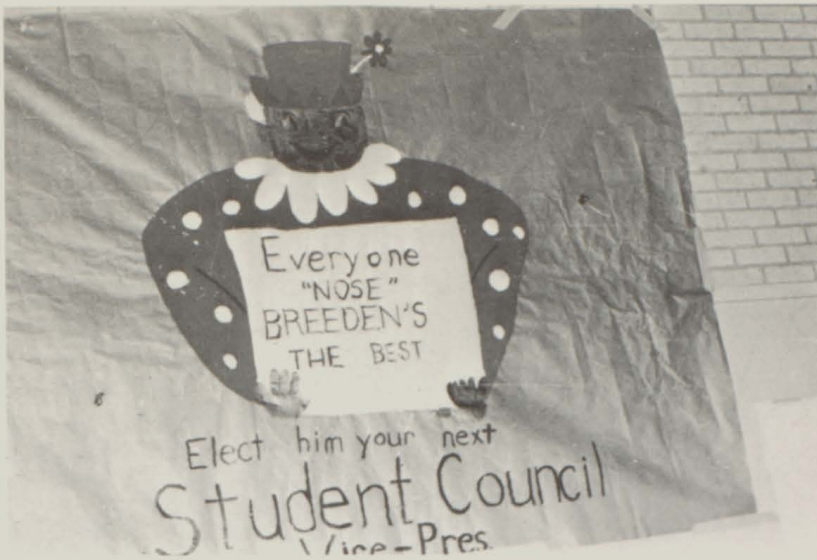 Everyone
"NOSE"
BREEDEN'S
THE BEST
Elect him your next
Student Council
Vice-Pres.